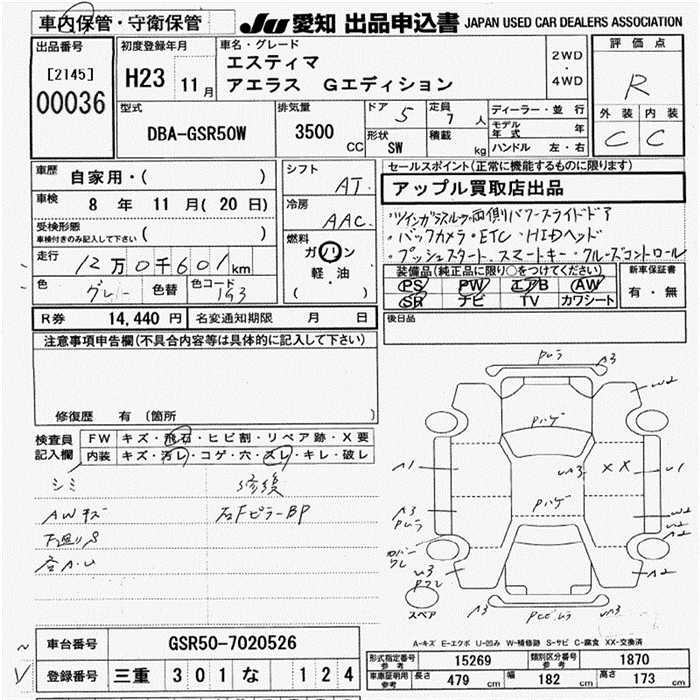 車内保管・守衛保管
JU 愛知 出品申込書 JAPAN USED CAR DEALERS ASSOCIATION
出品番号
[2145]
00036
初度登録年月
H23 11月
車名・グレード
エスティマ
アエラス Gエディション
2WD
・
4WD
評価点
R
外装 内装
C C
型式
DBA-GSR50W
排気量
3500 CC
ドア 5
定員 7 人
形状 SW
積載 kg
ディーラー・並行
モデル年式 年
ハンドル 左・右
車歴 自家用・( )
車検 8 年 11 月( 20 日)
受検形態
車検付きのみ記入して下さい ( )
走行 12万0千601km
色 グレー 色替 色コード 1G3
シフト AT
冷房 AAC
燃料
ガソリン
軽・油
( )
セールスポイント(正常に機能するものに限ります)
アップル買取店出品
・ツインガラスルーフ・両側パワースライドドア
・バックカメラ・ETC・HIDヘッド
・プッシュスタート・スマートキー・クルーズコントロール
装備品(純正品に限り○をつけてください)
PS PW エアB AW
SR ナビ TV カワシート
新車保証書
有・無
後日品
R券 14,440 円 名変通知期限 月 日
注意事項申告欄(不具合内容等は具体的に記入して下さい)
修復歴 有 (箇所 )
検査員
記入欄
FW キズ・飛石・ヒビ割・リペア跡・X要
内装 キズ・汚レ・コゲ・穴・スレ・キレ・破レ
シミ 修後
AWキズ 右FピラーBP
下廻りS
PムラA3
W2
Pハゲ
A1
UA3
XX
U1
A3
Pムラ
Pハゲ
W2
W2
A2
カバーワレ
U3
A2
スペア
UA3
A-キズ E-エクボ U-凹み W-補修跡 S-サビ C-腐食 XX-交換済
車台番号 GSR50-7020526
登録番号 三重 301 な 124
形式指定番号
参考
15269
類別区分番号
参考
1870
車車証明用
参考
長さ 479 cm 幅 182 cm 高さ 173 cm